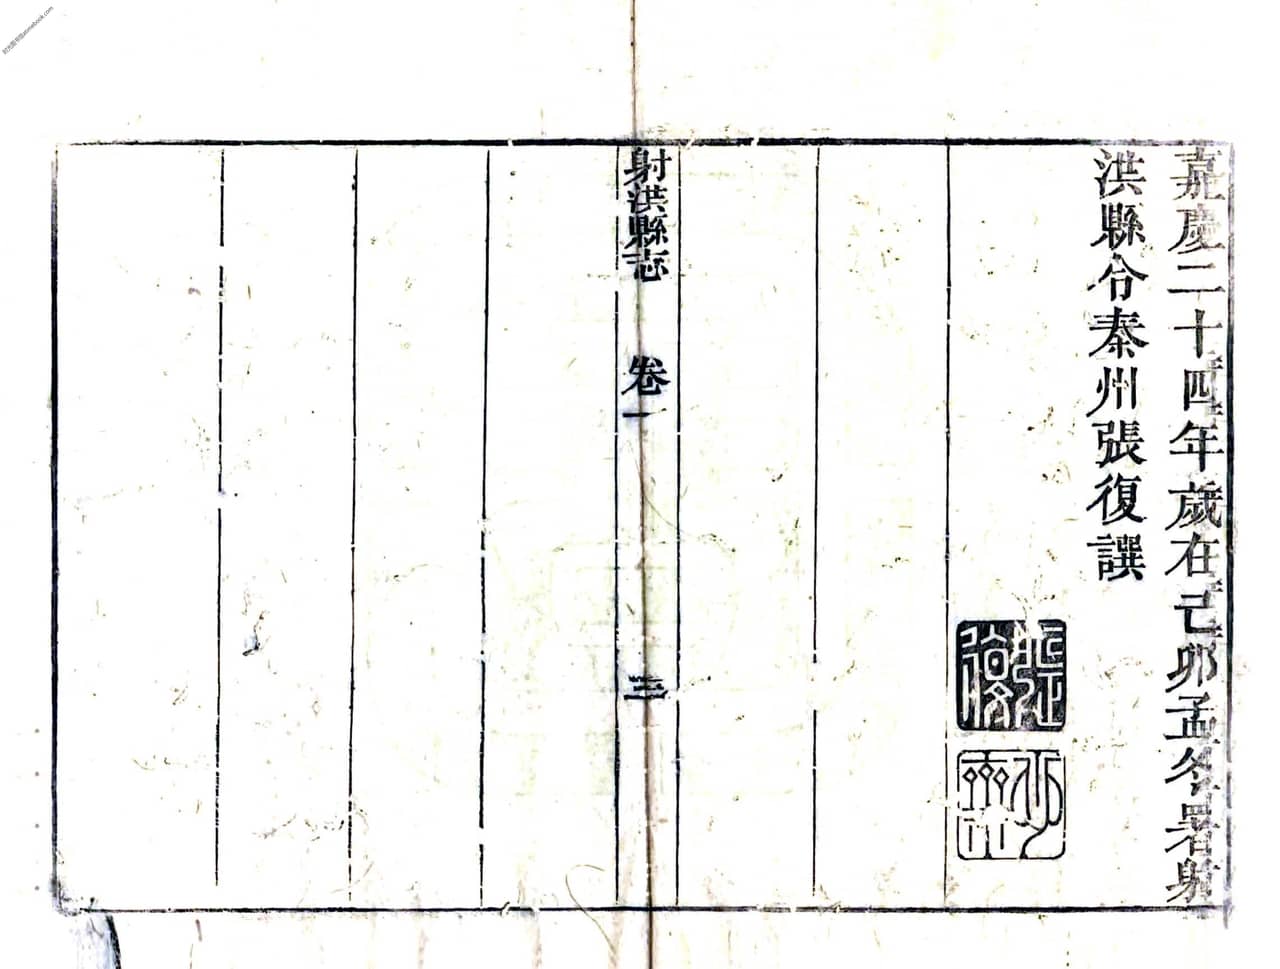 嘉慶二十四年歲在己卯孟冬署射
洪縣令秦州張復譔
射洪縣志 卷一 三